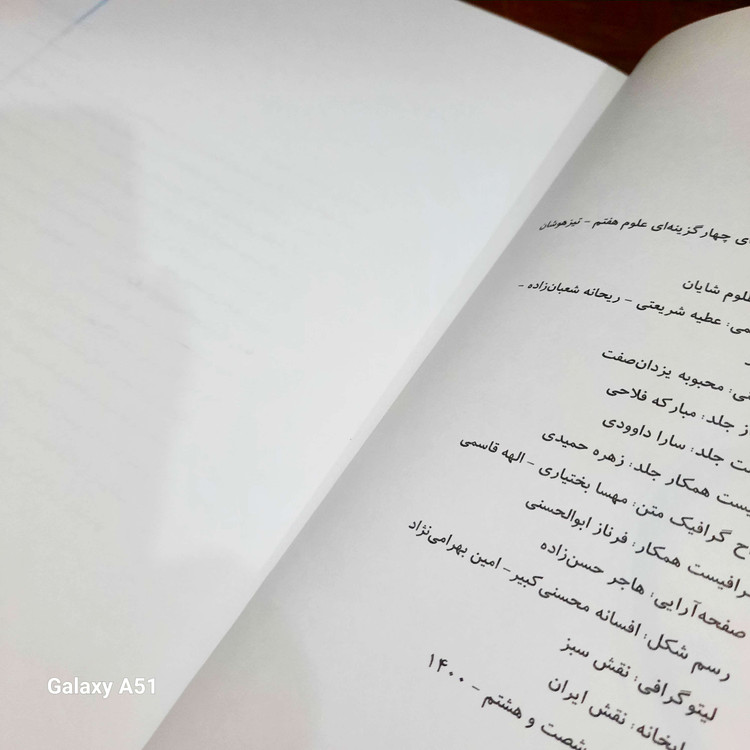 چهارگزینه‌ای علوم هفتم - تیزهوشان
علوم شایان
عطیه شریعتی - ریحانه شعبان‌زاده -
محبوبه یزدان‌صفت
جلد: مبارکه فلاحی
جلد: سارا داوودی
همکار جلد: زهره حمیدی
گرافیک متن: مهسا بختیاری - الهه قاسمی
گرافیست همکار: فرناز ابوالحسنی
صفحه‌آرایی: هاجر حسن‌زاده
رسم شکل: افسانه محسنی‌کبیر - امین بهرامی‌نژاد
لیتوگرافی: نقش سبز
چاپخانه: نقش ایران
شصت و هشتم - ۱۴۰۰
Galaxy A51